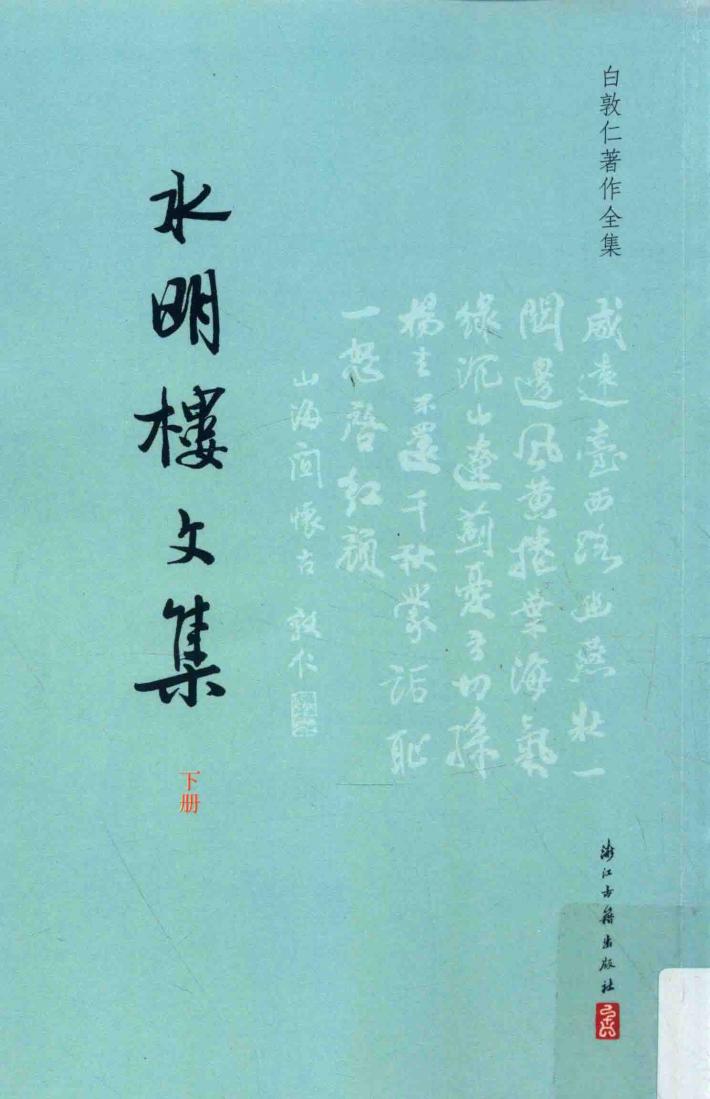 白敦仁著作全集
威遠臺西路幽燕壯一
關邊風黃捲葉海氣
綠沉山遼薊憂方切孫
楊去不還千秋蒙詬恥
一怒啓紅顏
山海關懷古 敦仁
水明樓文集
下册
浙江古籍出版社